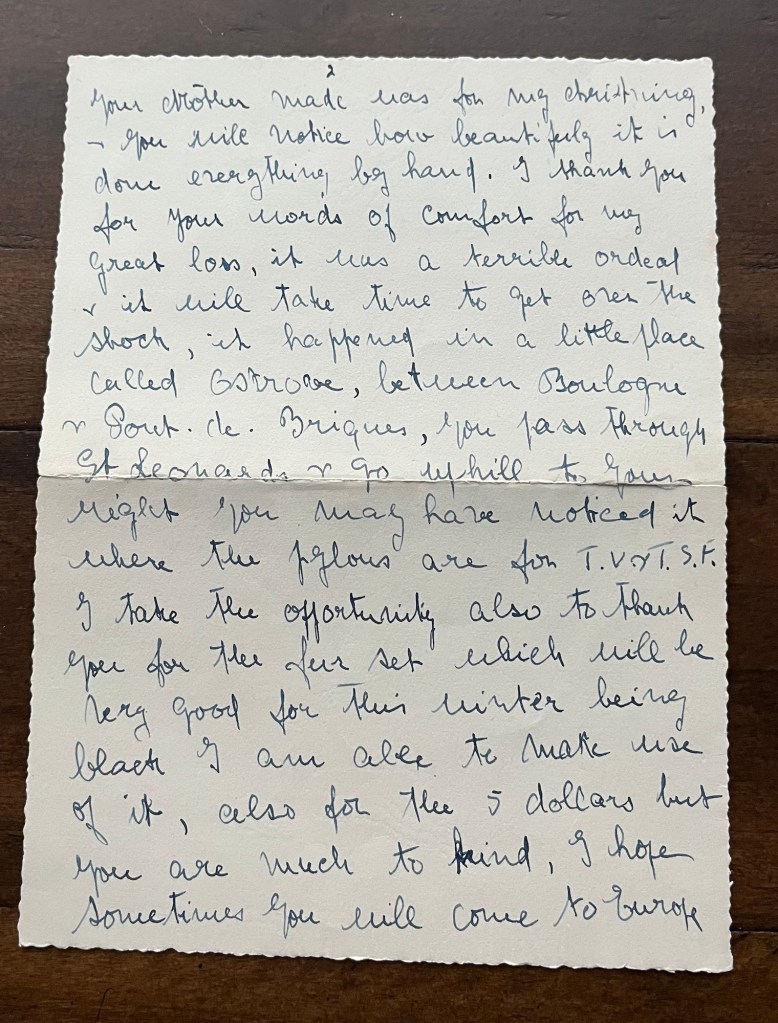 2
your Mother made was for my christning,
- you will notice how beautifuly it is
done everything by hand. I thank you
for your words of comfort for my
great loss, it was a terrible ordeal
& it will take time to get over the
shock, it happened in a little place
called Ostrove, between Boulogne
& Pont. de. Briques, you pass through
St Leonards & go uphill to your
right you may have noticed it
where the pylons are for T.V. & T.S.F.
I take the opportunity also to thank
you for the fur set which will be
very good for this winter being
black I am able to make use
of it, also for the 5 dollars but
you are much to kind, I hope
sometimes you will come to Europe